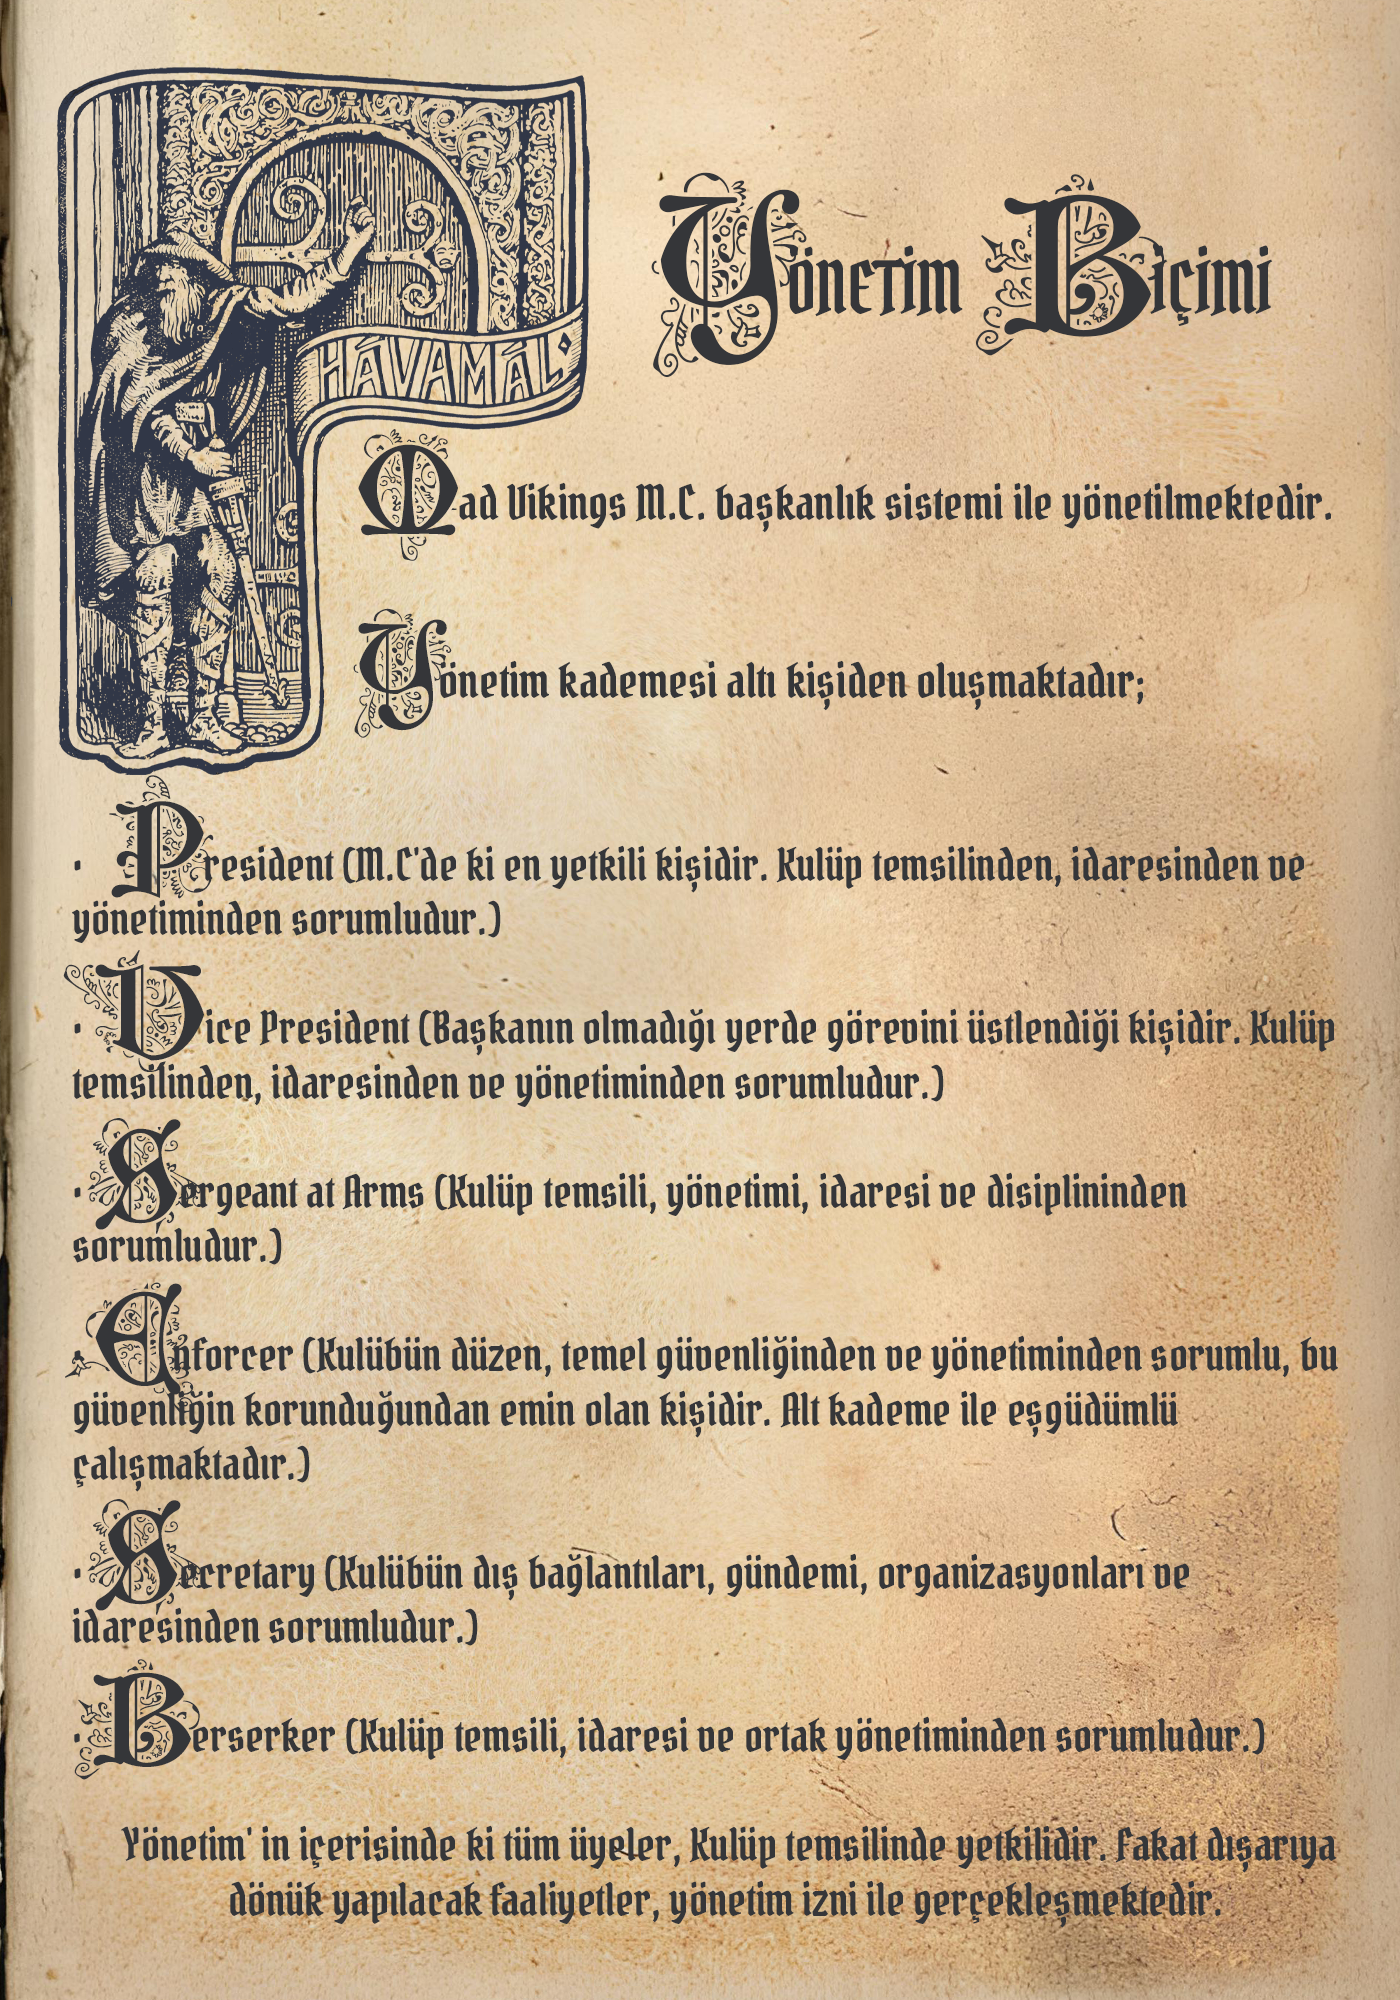 HÁVAMÁL
Yönetim Biçimi
Mad Vikings M.C. başkanlık sistemi ile yönetilmektedir.
Yönetim kademesi altı kişiden oluşmaktadır;
· President (M.C'de ki en yetkili kişidir. Kulüp temsilinden, idaresinden ve
yönetiminden sorumludur.)
· Vice President (Başkanın olmadığı yerde görevini üstlendiği kişidir. Kulüp
temsilinden, idaresinden ve yönetiminden sorumludur.)
· Sergeant at Arms (Kulüp temsili, yönetimi, idaresi ve disiplininden
sorumludur.)
Enforcer (Kulübün düzen, temel güvenliğinden ve yönetiminden sorumlu, bu
güvenliğin korunduğundan emin olan kişidir. Alt kademe ile eşgüdümlü
çalışmaktadır.)
· Secretary (Kulübün dış bağlantıları, gündemi, organizasyonları ve
idaresinden sorumludur.)
· Berserker (Kulüp temsili, idaresi ve ortak yönetiminden sorumludur.)
Yönetim' in içerisinde ki tüm üyeler, Kulüp temsilinde yetkilidir. Fakat dışarıya
dönük yapılacak faaliyetler, yönetim izni ile gerçekleşmektedir.